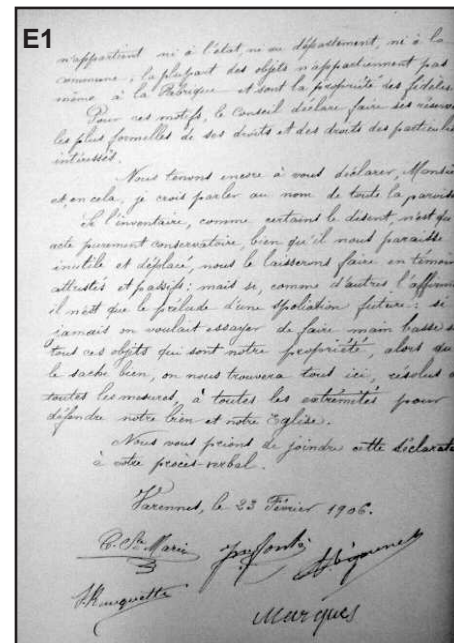 E1
n'appartient ni à l'état, ni au département, ni à la
commune ; la plupart des objets n'appartiennent pas
même à la Fabrique et sont la propriété des fidèles.
Pour ces motifs, le Conseil déclare faire ses réserves
les plus formelles de ses droits et des droits des particuliers
intéressés.
Nous tenons encore à vous déclarer, Monsieur
et, en cela, je crois parler au nom de toute la paroisse
Si l'inventaire, comme certains le disent n'est qu'
acte purement conservatoire, bien qu'il nous paraisse
inutile et déplacé, nous le laisserons faire en témoins
attristés et passifs : mais si, comme d'autres l'affirment
il n'est que le prélude d'une spoliation future : si
jamais on voulait essayer de faire main basse su
tous ces objets qui sont notre propriété, alors qu
le sache bien, on nous trouvera tous ici, résolus à
toutes les mesures, à toutes les extrémités pour
défendre notre bien et notre Eglise.
Nous vous prions de joindre cette déclarat
à votre procès-verbal.
Varennes, le 23 Février 1906.
C. Ste Marie
J. Rouquette
Marques